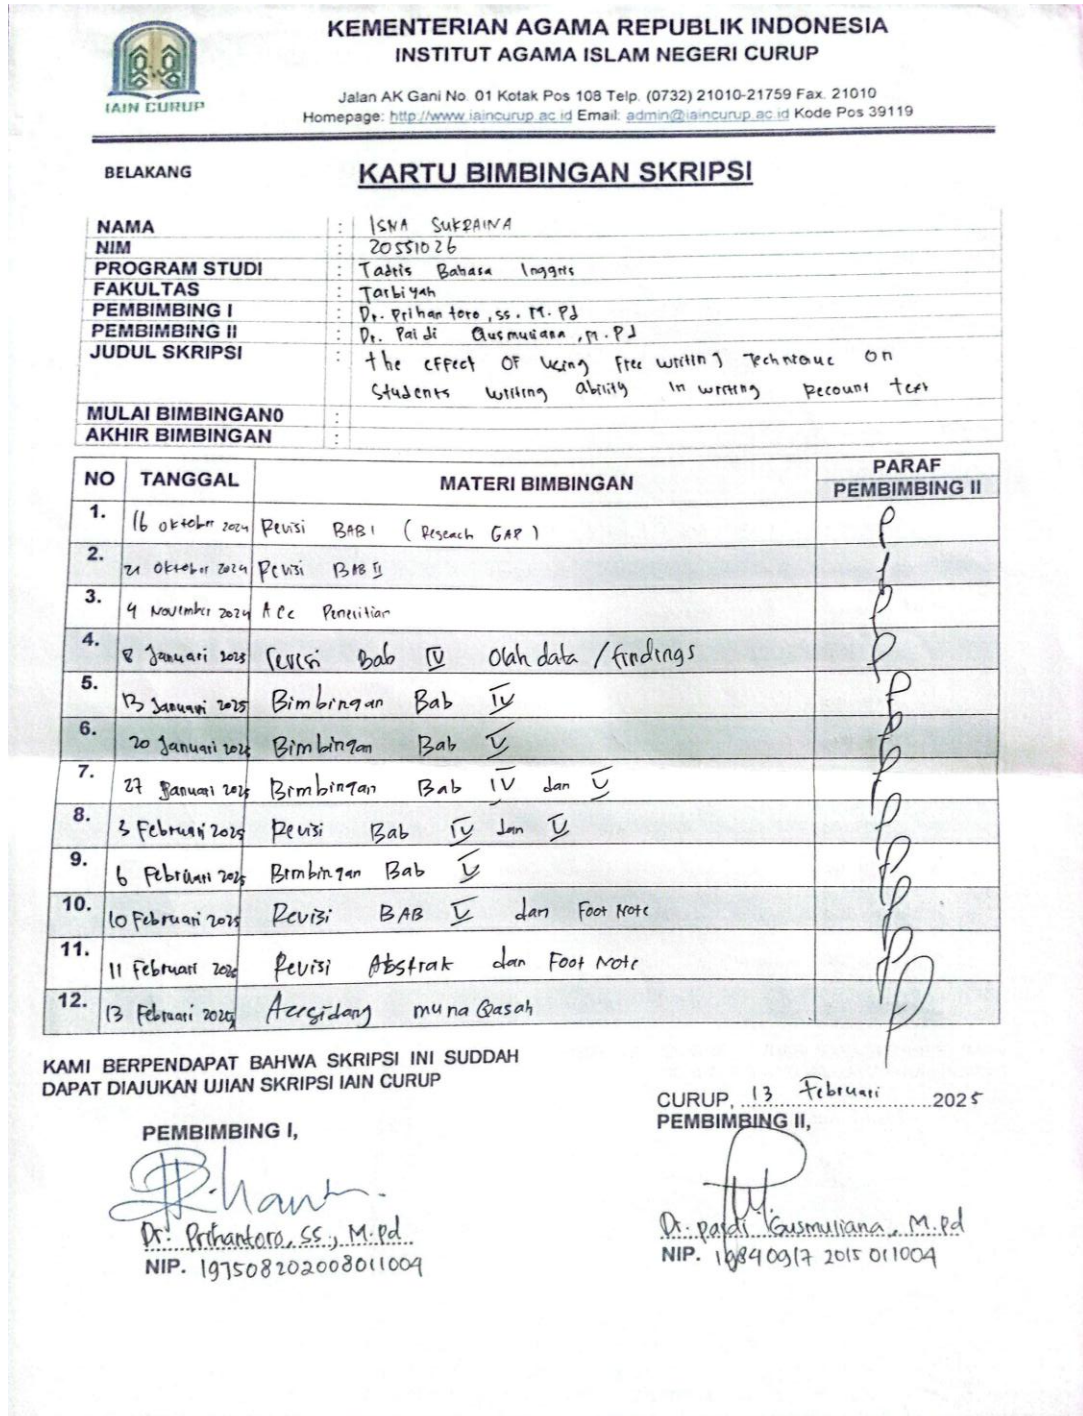 IAIN CURUP
KEMENTERIAN AGAMA REPUBLIK INDONESIA
INSTITUT AGAMA ISLAM NEGERI CURUP
Jalan AK Gani No. 01 Kotak Pos 108 Telp. (0732) 21010-21759 Fax. 21010
Homepage: http://www.iaincurup.ac.id Email: admin@iaincurup.ac.id Kode Pos 39119
BELAKANG
KARTU BIMBINGAN SKRIPSI
NAMA : ISNA SUKRAINA
NIM : 20551026
PROGRAM STUDI : Tadris Bahasa Inggris
FAKULTAS : Tarbiyah
PEMBIMBING I : Dr. Prihantoro, SS. M. Pd
PEMBIMBING II : Dr. Paidi Gusmuliana, M. Pd
JUDUL SKRIPSI : the effect OF using Free writing Technique on
Students writing ability In writing Recount text
MULAI BIMBINGAN0 :
AKHIR BIMBINGAN :
NO TANGGAL MATERI BIMBINGAN PARAF
PEMBIMBING II
1. 16 Oktober 2024 Revisi BAB I (Reseach GAP)
2. 21 Oktober 2024 Revisi BAB II
3. 4 November 2024 Acc Penelitian
4. 8 Januari 2025 revisi Bab IV Olah data / findings
5. 13 Januari 2025 Bimbingan Bab IV
6. 20 Januari 2025 Bimbingan Bab V
7. 27 Januari 2025 Bimbingan Bab IV dan V
8. 3 Februari 2025 Revisi Bab IV dan V
9. 6 Februari 2025 Bimbingan Bab V
10. 10 Februari 2025 Revisi BAB V dan Foot Note
11. 11 Februari 2025 Revisi Abstrak dan Foot Note
12. 13 Februari 2025 Acc sidang munaQasah
KAMI BERPENDAPAT BAHWA SKRIPSI INI SUDDAH
DAPAT DIAJUKAN UJIAN SKRIPSI IAIN CURUP
CURUP, 13 Februari 2025
PEMBIMBING I,
PEMBIMBING II,
Dr. Prihantoro, SS., M.Pd
Dr. Paidi Gusmuliana, M.Pd
NIP. 197508202008011004
NIP. 19840917 2015 011004